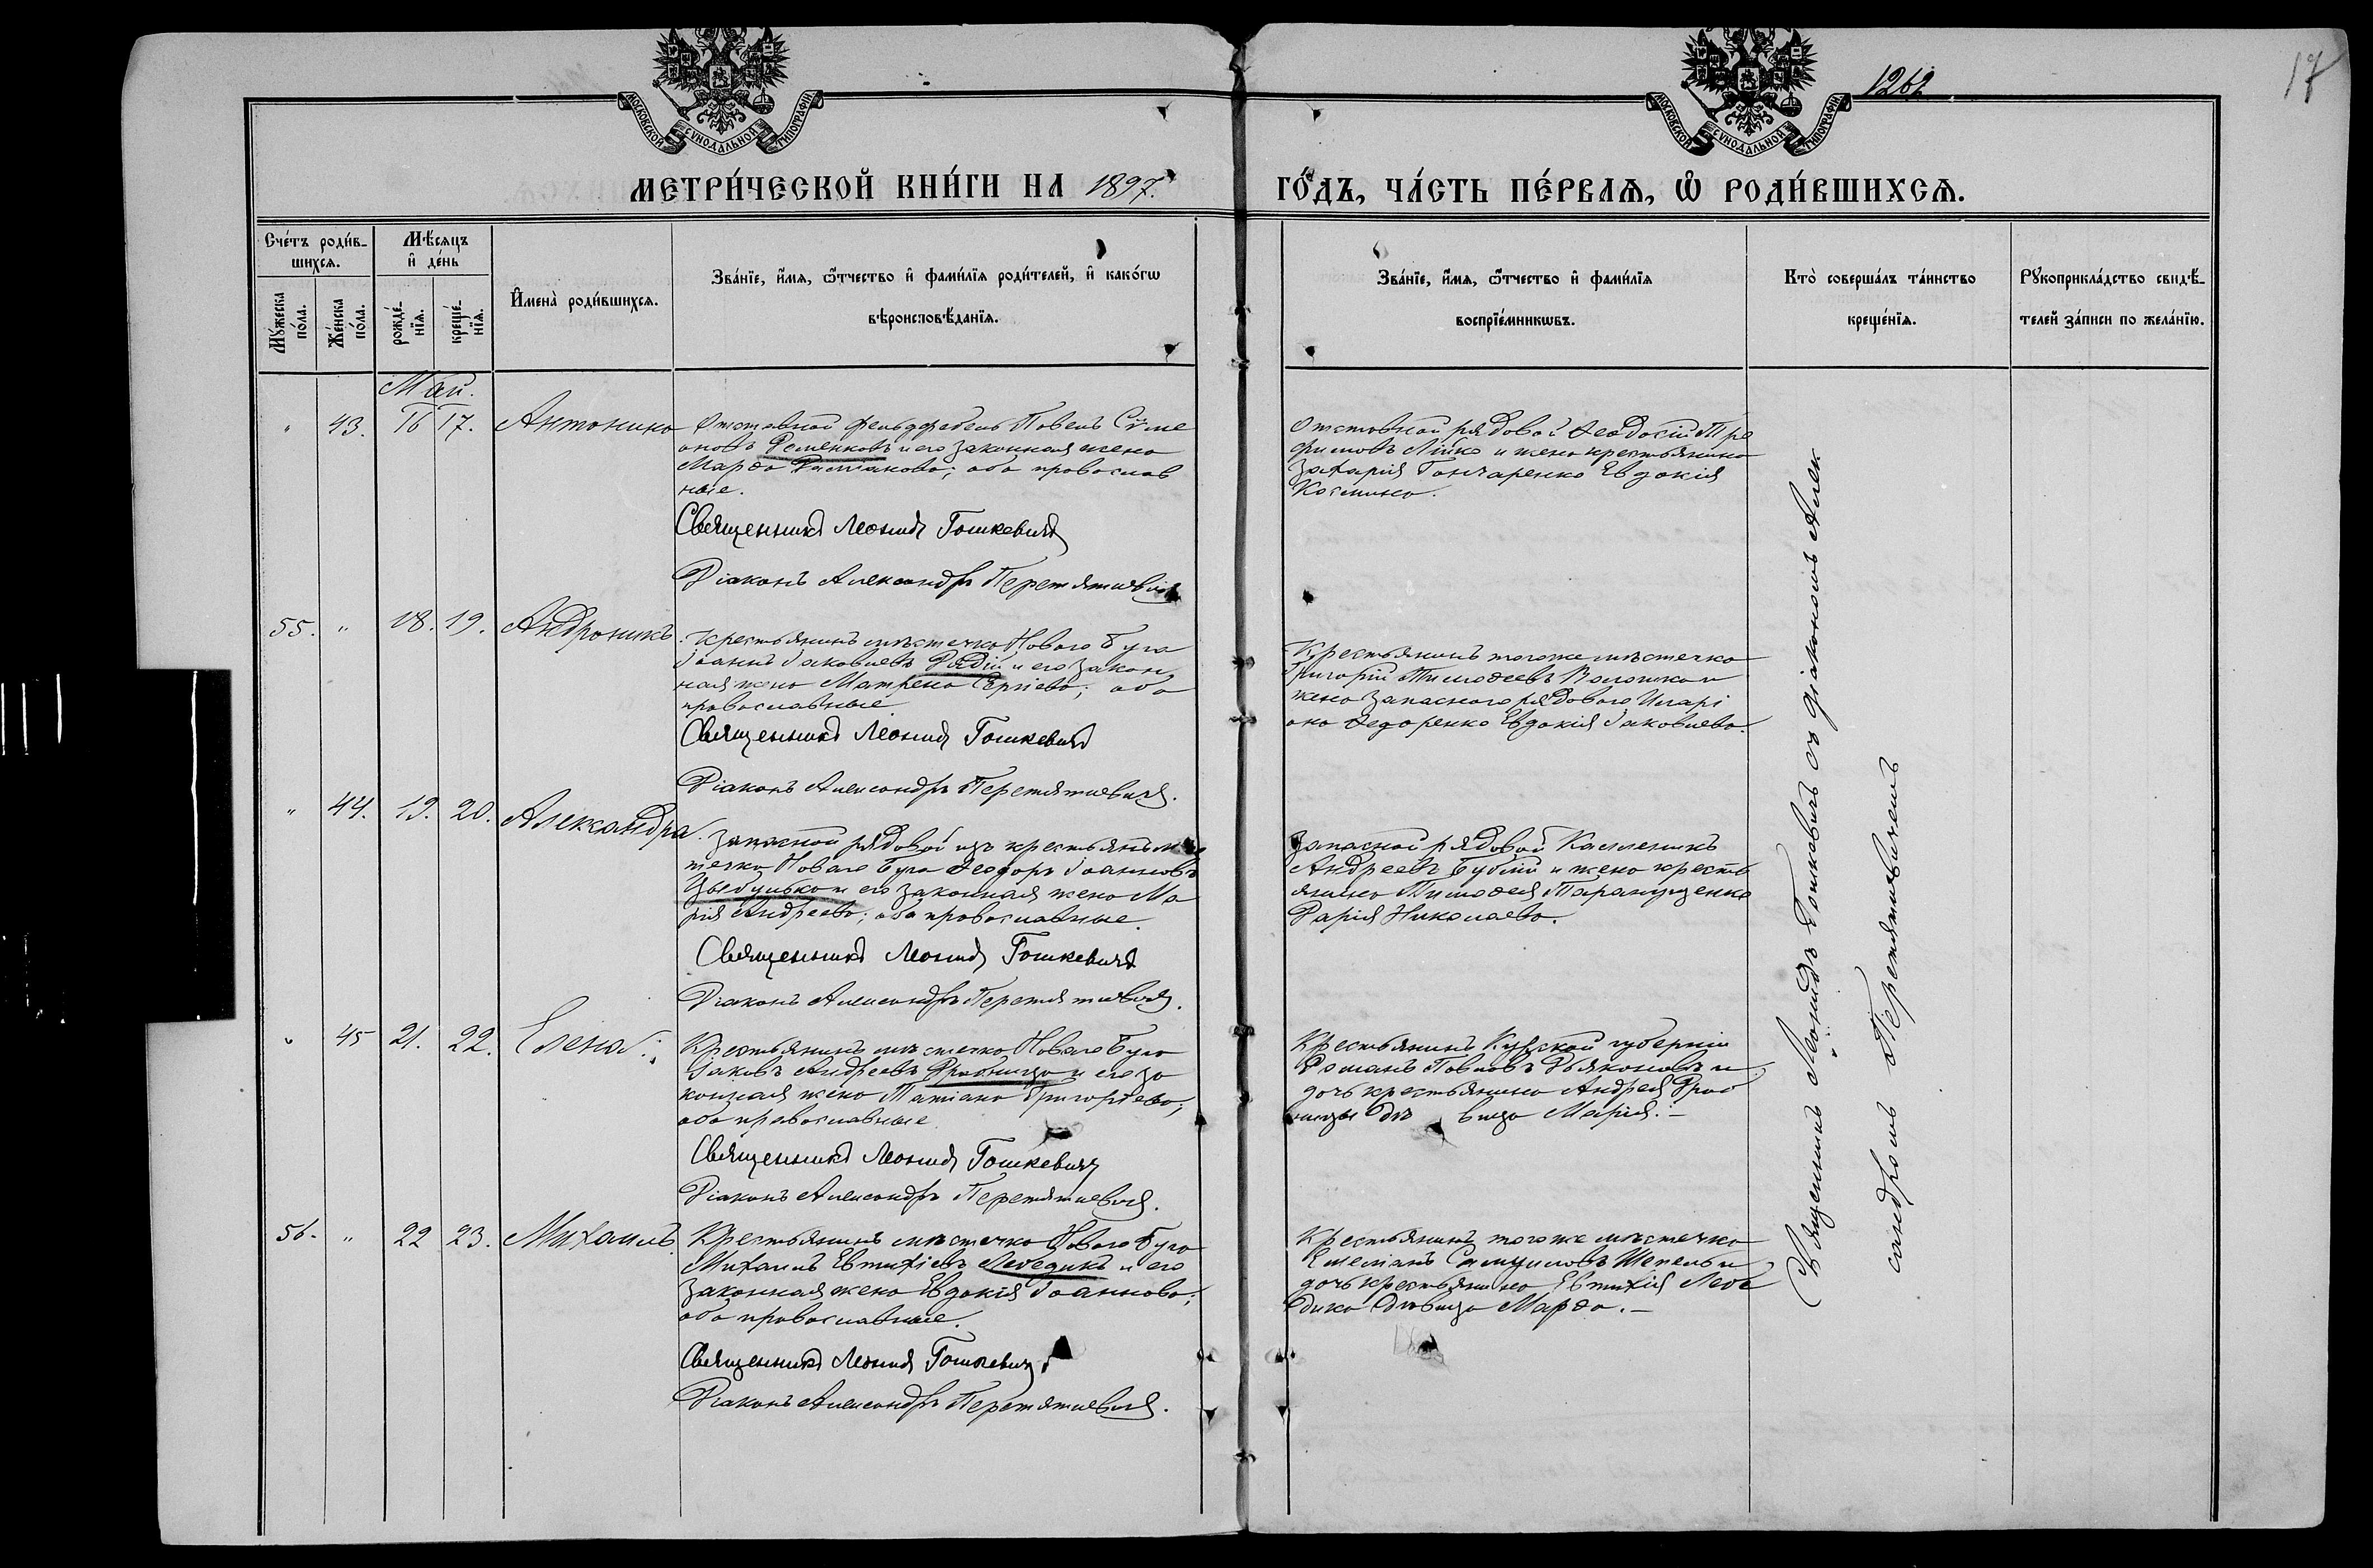 МОСКОВСКОЙ СѴНОДАЛЬНОЙ ТИПОГРАФІИ
МОСКОВСКОЙ СѴНОДАЛЬНОЙ ТИПОГРАФІИ
1262
17
МЕТРИ́ЧЕСКОЙ КНИ́ГИ НА 1897. ГО́ДЪ, ЧА́СТЬ ПЕ́РВАѦ, Ѡ҆ РОДИ́ВШИХСѦ.
Сче́тъ роди́в-
шихсѧ.
Мꙋ́жеска
по́ла.
Же́нска
по́ла.
Мѣ́сѧцъ
и҆ де́нь
рожде́-
нїѧ.
креще́-
нїѧ.
И҆мена̀ роди́вшихсѧ.
Зва́нїе, и҆́мѧ, ѻ҆́тчество и҆ фами́лїѧ роди́телей, и҆ како́гѡ
вѣроисповѣ́данїѧ.
Зва́нїе, и҆́мѧ, ѻ҆́тчество и҆ фами́лїѧ
воспрїе́мникѡвъ.
Кто̀ соверша́лъ та́инство
креще́нїѧ.
Рꙋкоприкла́дство свидѣ́-
телей за́писи по жела́нїю.
Май.
" 43. 16 17. Антонина
Отставной фельдфебель Павелъ Сѵме
оновъ Семенковъ и его законная жена
Марѳа; оба православ
ные.
Священникъ Леонидъ Гошкевичъ
Діаконъ Александръ Перетяткевичъ
Отставной рядовой Ѳеодосій Тро
фимовъ Лійко и жена крестьянина
Захарія Гончаренко Евдокія
Космина.
55. " 18. 19. Андроникъ.
Крестьянинъ мѣстечка Новаго Буга
Іоаннъ Іаковлевъ Радій и его закон
ная жена Матрена Сергіева; оба
православные
Священникъ Леонидъ Гошкевичъ
Діаконъ Александръ Перетяткевичъ.
Крестьянинъ тогоже мѣстечка
Григорій Тимоѳеевъ Волошко и
жена запаснаго рядового Иларі
она Ѳедоренко Евдокія Іаковлева.
" 44. 19. 20. Александра.
Запасной рядовой изъ крестьянъ мѣс
течка Новаго Буга Ѳеодоръ Іоанновъ
Цыбулько и его законная жена Ма
рія Андреева; оба православные.
Священникъ Леонидъ Гошкевичъ
Діаконъ Александръ Перетяткевичъ.
Запасной рядовой Каллиникъ
Андреевъ Бублій и жена кресть
янина Тимоѳея Таранущенко
Дарія Николаева.
" 45 21. 22. Елена.
Крестьянинъ мѣстечка Новаго Буга
Іаковъ Андреевъ Дробница и его за
конная жена Татіана Григорьева;
оба православные.
Священникъ Леонидъ Гошкевичъ
Діаконъ Александръ Перетяткевичъ.
Крестьянинъ Курской губерніи
Романъ Павловъ Дьяконовъ и
дочь крестьянина Андрея Дроб
ницы дѣвица Марія. –
56. " 22 23. Михаилъ.
Крестьянинъ мѣстечка Новаго Буга
Михаилъ Евтихіевъ Лебедикъ и его
законная жена Евдокія Іоаннова;
оба православные.
Священникъ Леонидъ Гошкевичъ
Діаконъ Александръ Перетяткевичъ.
Крестьянинъ тогоже мѣстечка
Емеліанъ Самуиловъ Шепель и
дочь крестьянина Евтихія Лебе
дика дѣвица Марѳа. –
Священникъ Леонидъ Гошкевичъ съ діакономъ Алек
сандромъ Перетяткевичемъ